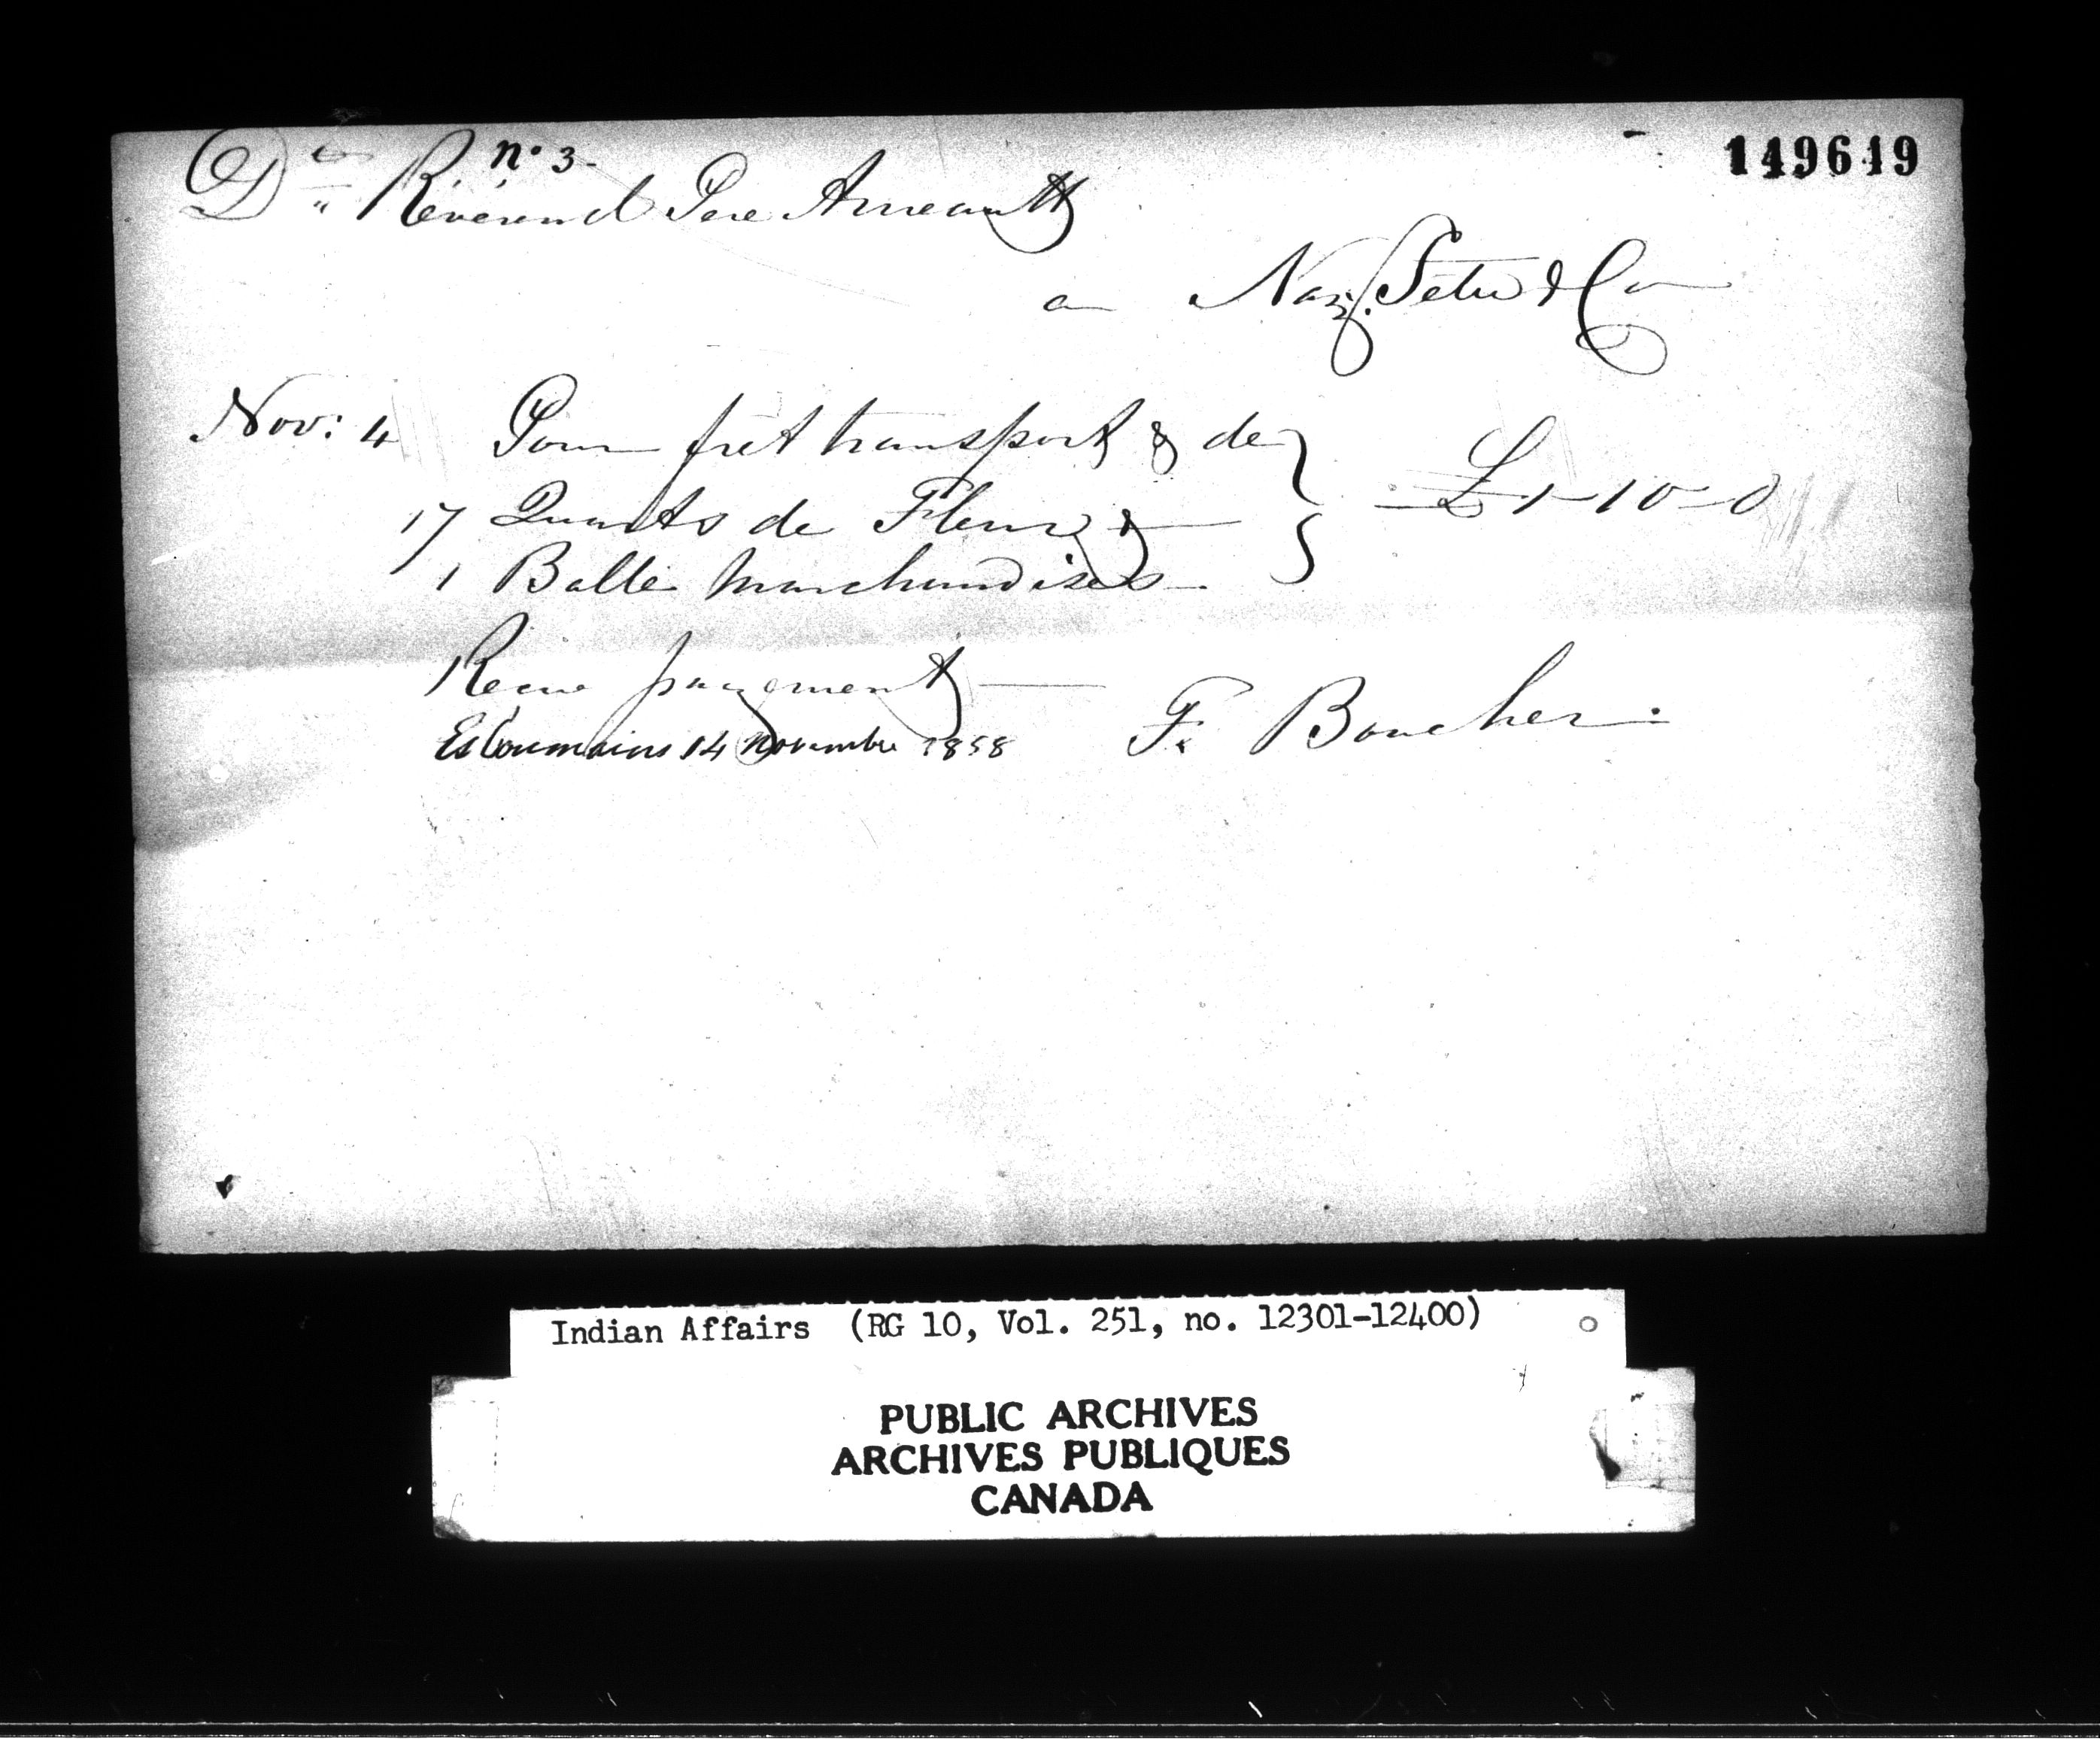 n° 3-
149619
Dr Révérend Pere Arneault
a Naz. Tetu & Co
Nov: 4 Pour fret transport & de
17 Quarts de Fleur & £1-10-0
1 Balle Marchandises
Recu payement
Escoumains 14 Novembre 1858 F. Boucher.
Indian Affairs (RG 10, Vol. 251, no. 12301-12400)
PUBLIC ARCHIVES
ARCHIVES PUBLIQUES
CANADA